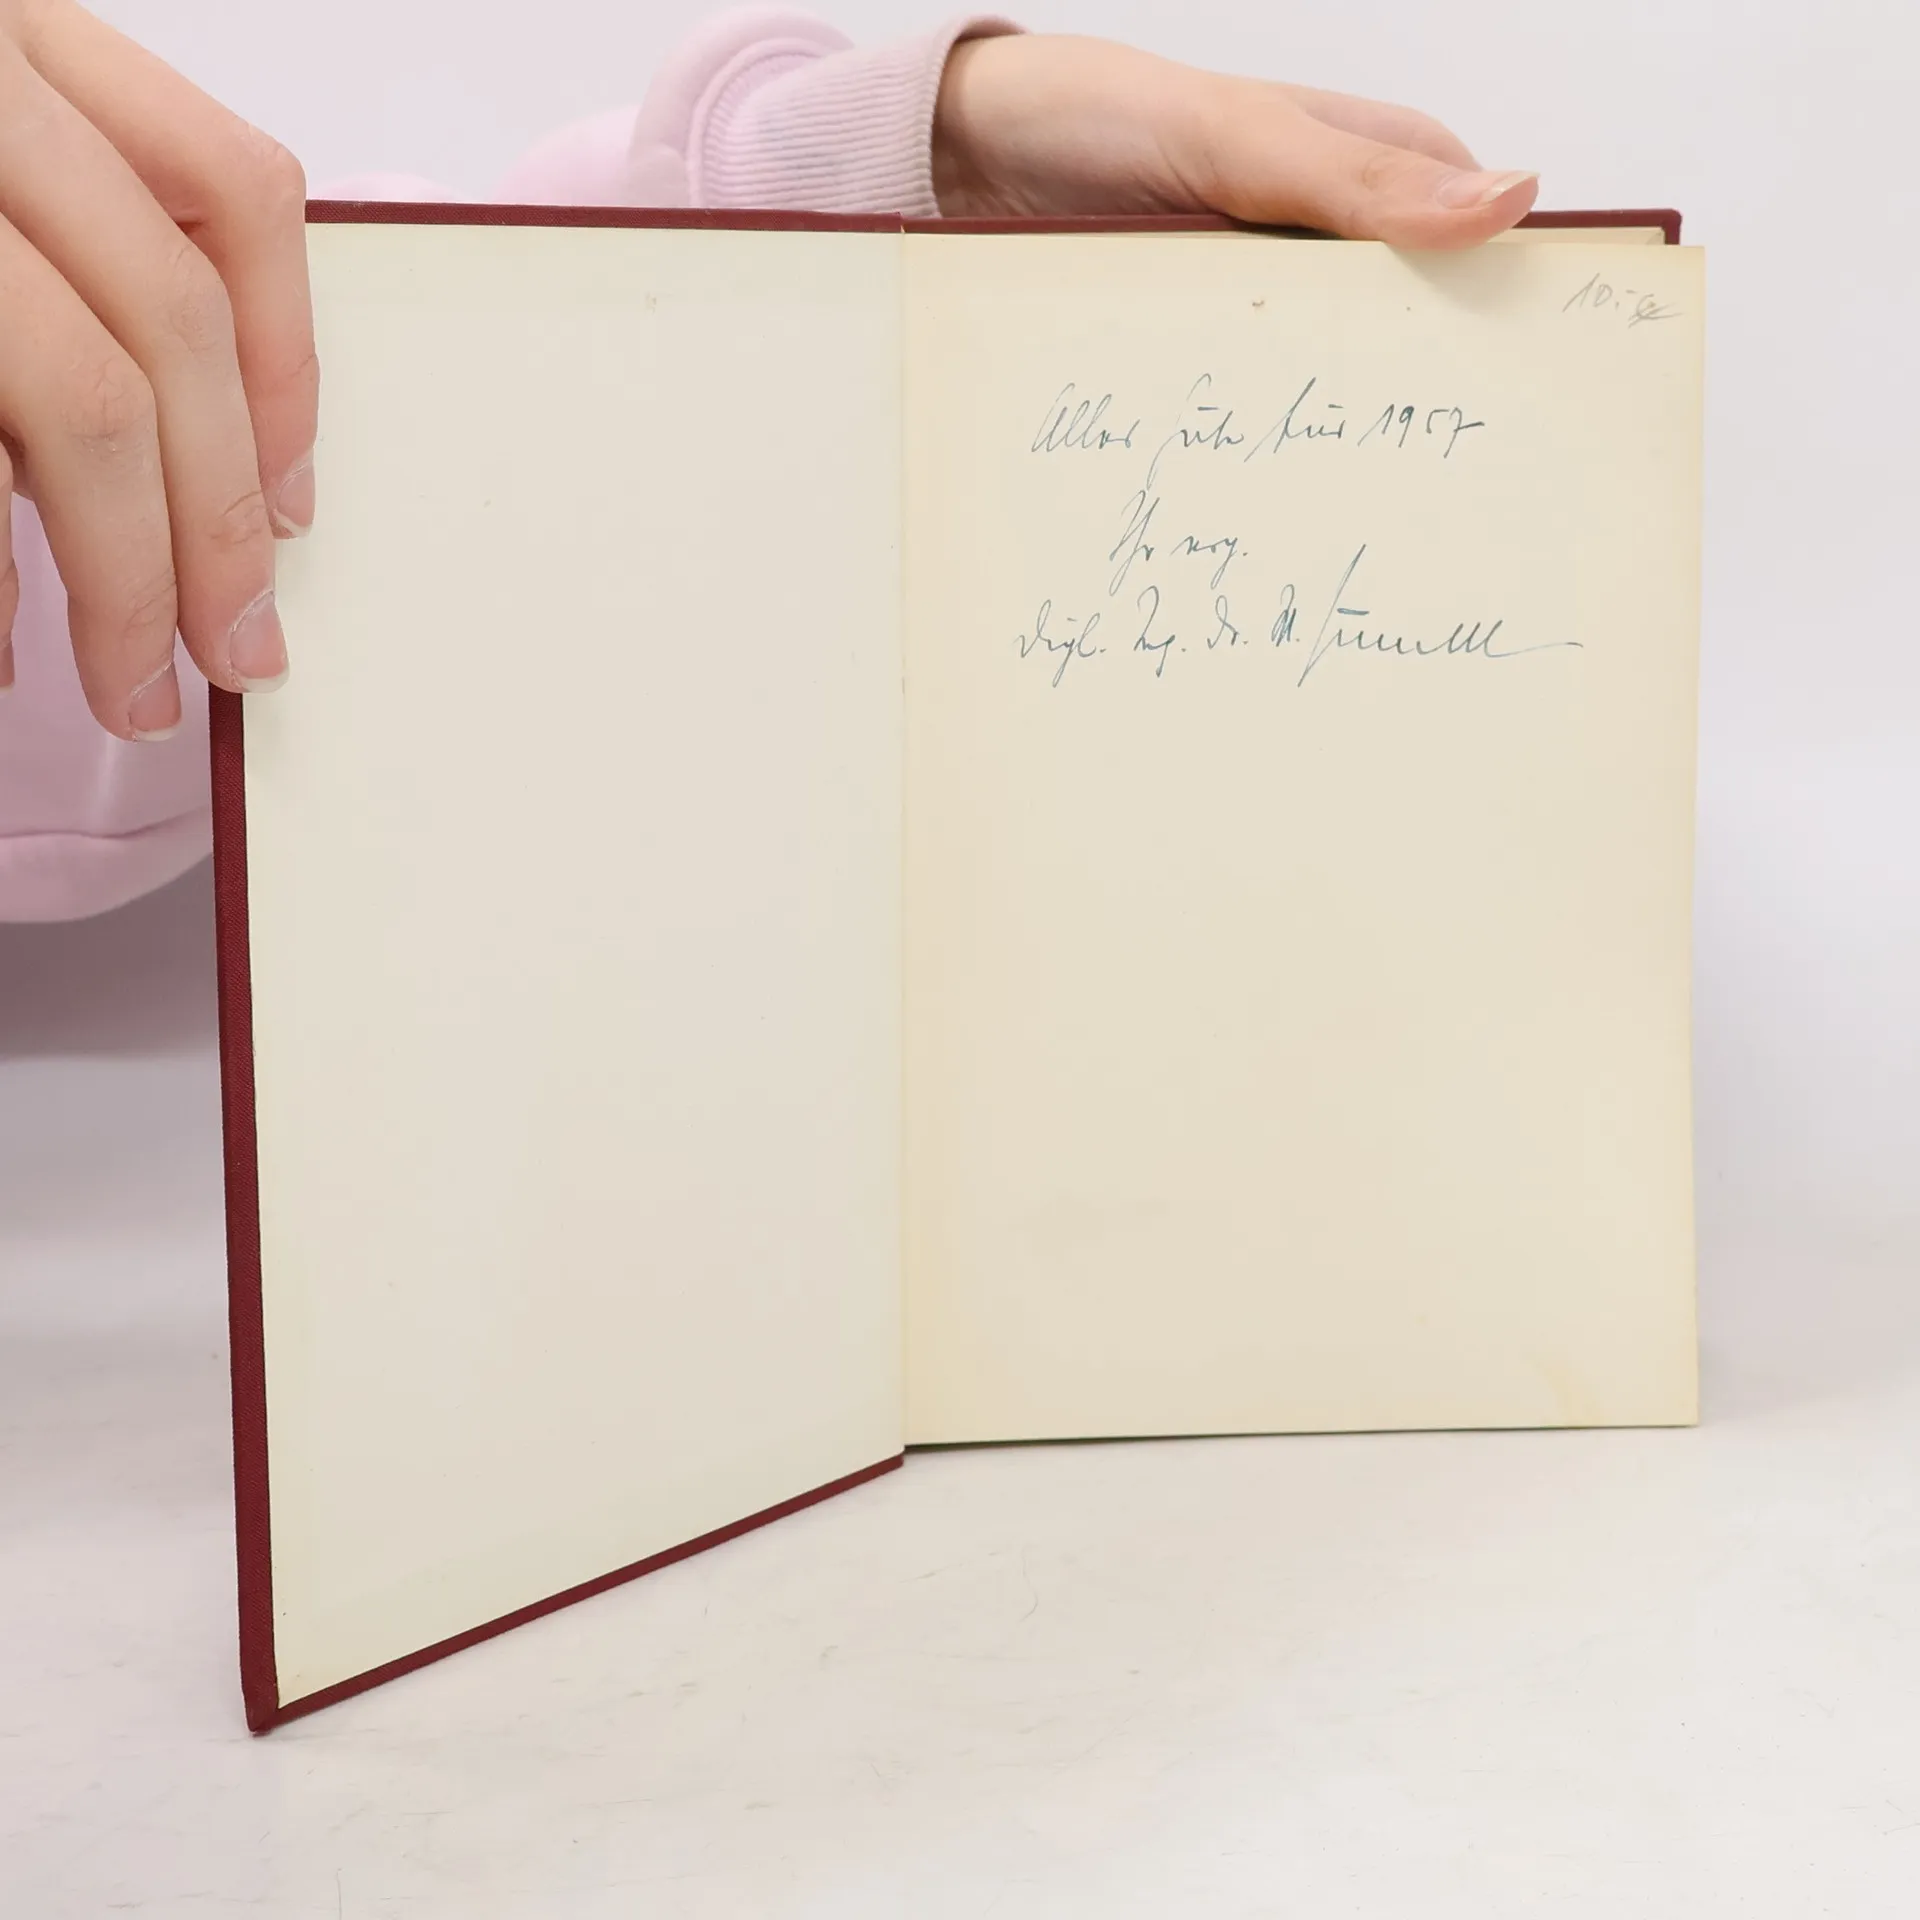 10.-
Alles Gute für 1957
Ihr erg.
Dipl. Ing. Dr. H.